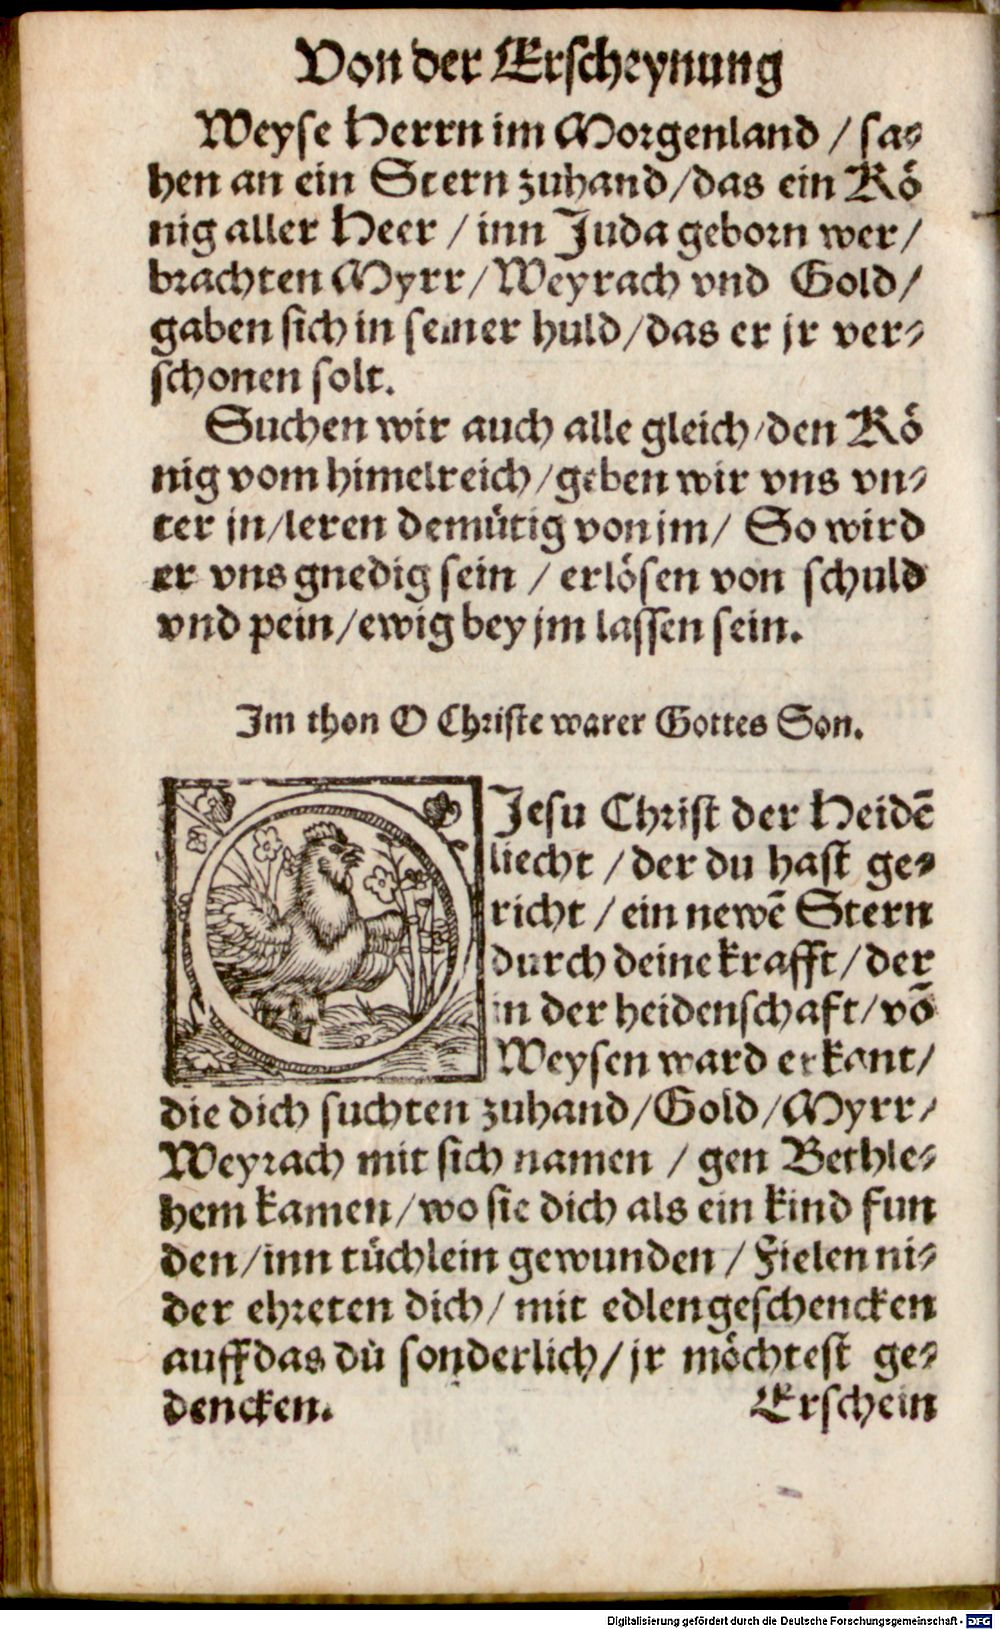 Von der Erscheynung
Weyse Herrn im Morgenland / sa⸗
hen an ein Stern zuhand/das ein Kö
nig aller Heer / inn Juda geborn wer/
brachten Myrr/Weyrach vnd Gold/
gaben sich in seiner huld/das er jr ver⸗
schonen solt.
Suchen wir auch alle gleich/den Kö
nig vom himelreich/geben wir vns vn⸗
ter jn/leren demütig von jm/ So wird
er vns gnedig sein / erlösen von schuld
vnd pein/ewig bey jm lassen sein.
Im thon O Christe warer Gottes Son.
OJesu Christ der Heidē
liecht / der du hast ge⸗
richt / ein newē Stern
durch deine krafft/der
in der heidenschaft/vō
Weysen ward erkant/
die dich suchten zuhand/Gold/Myrr/
Weyrach mit sich namen / gen Bethle⸗
hem kamen/wo sie dich als ein kind fun
den/inn tüchlein gewunden / Fielen ni⸗
der ehreten dich/ mit edlen geschencken
auff das du sonderlich/jr möchtest ge⸗
dencken. Erschein
Digitalisierung gefördert durch die Deutsche Forschungsgemeinschaft - DFG